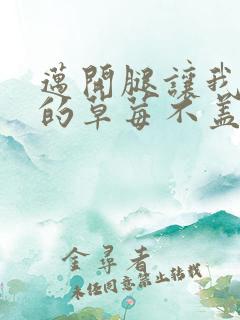 邁開腿讓我
的草莓不蓋
金尋者
未经同意禁止转载